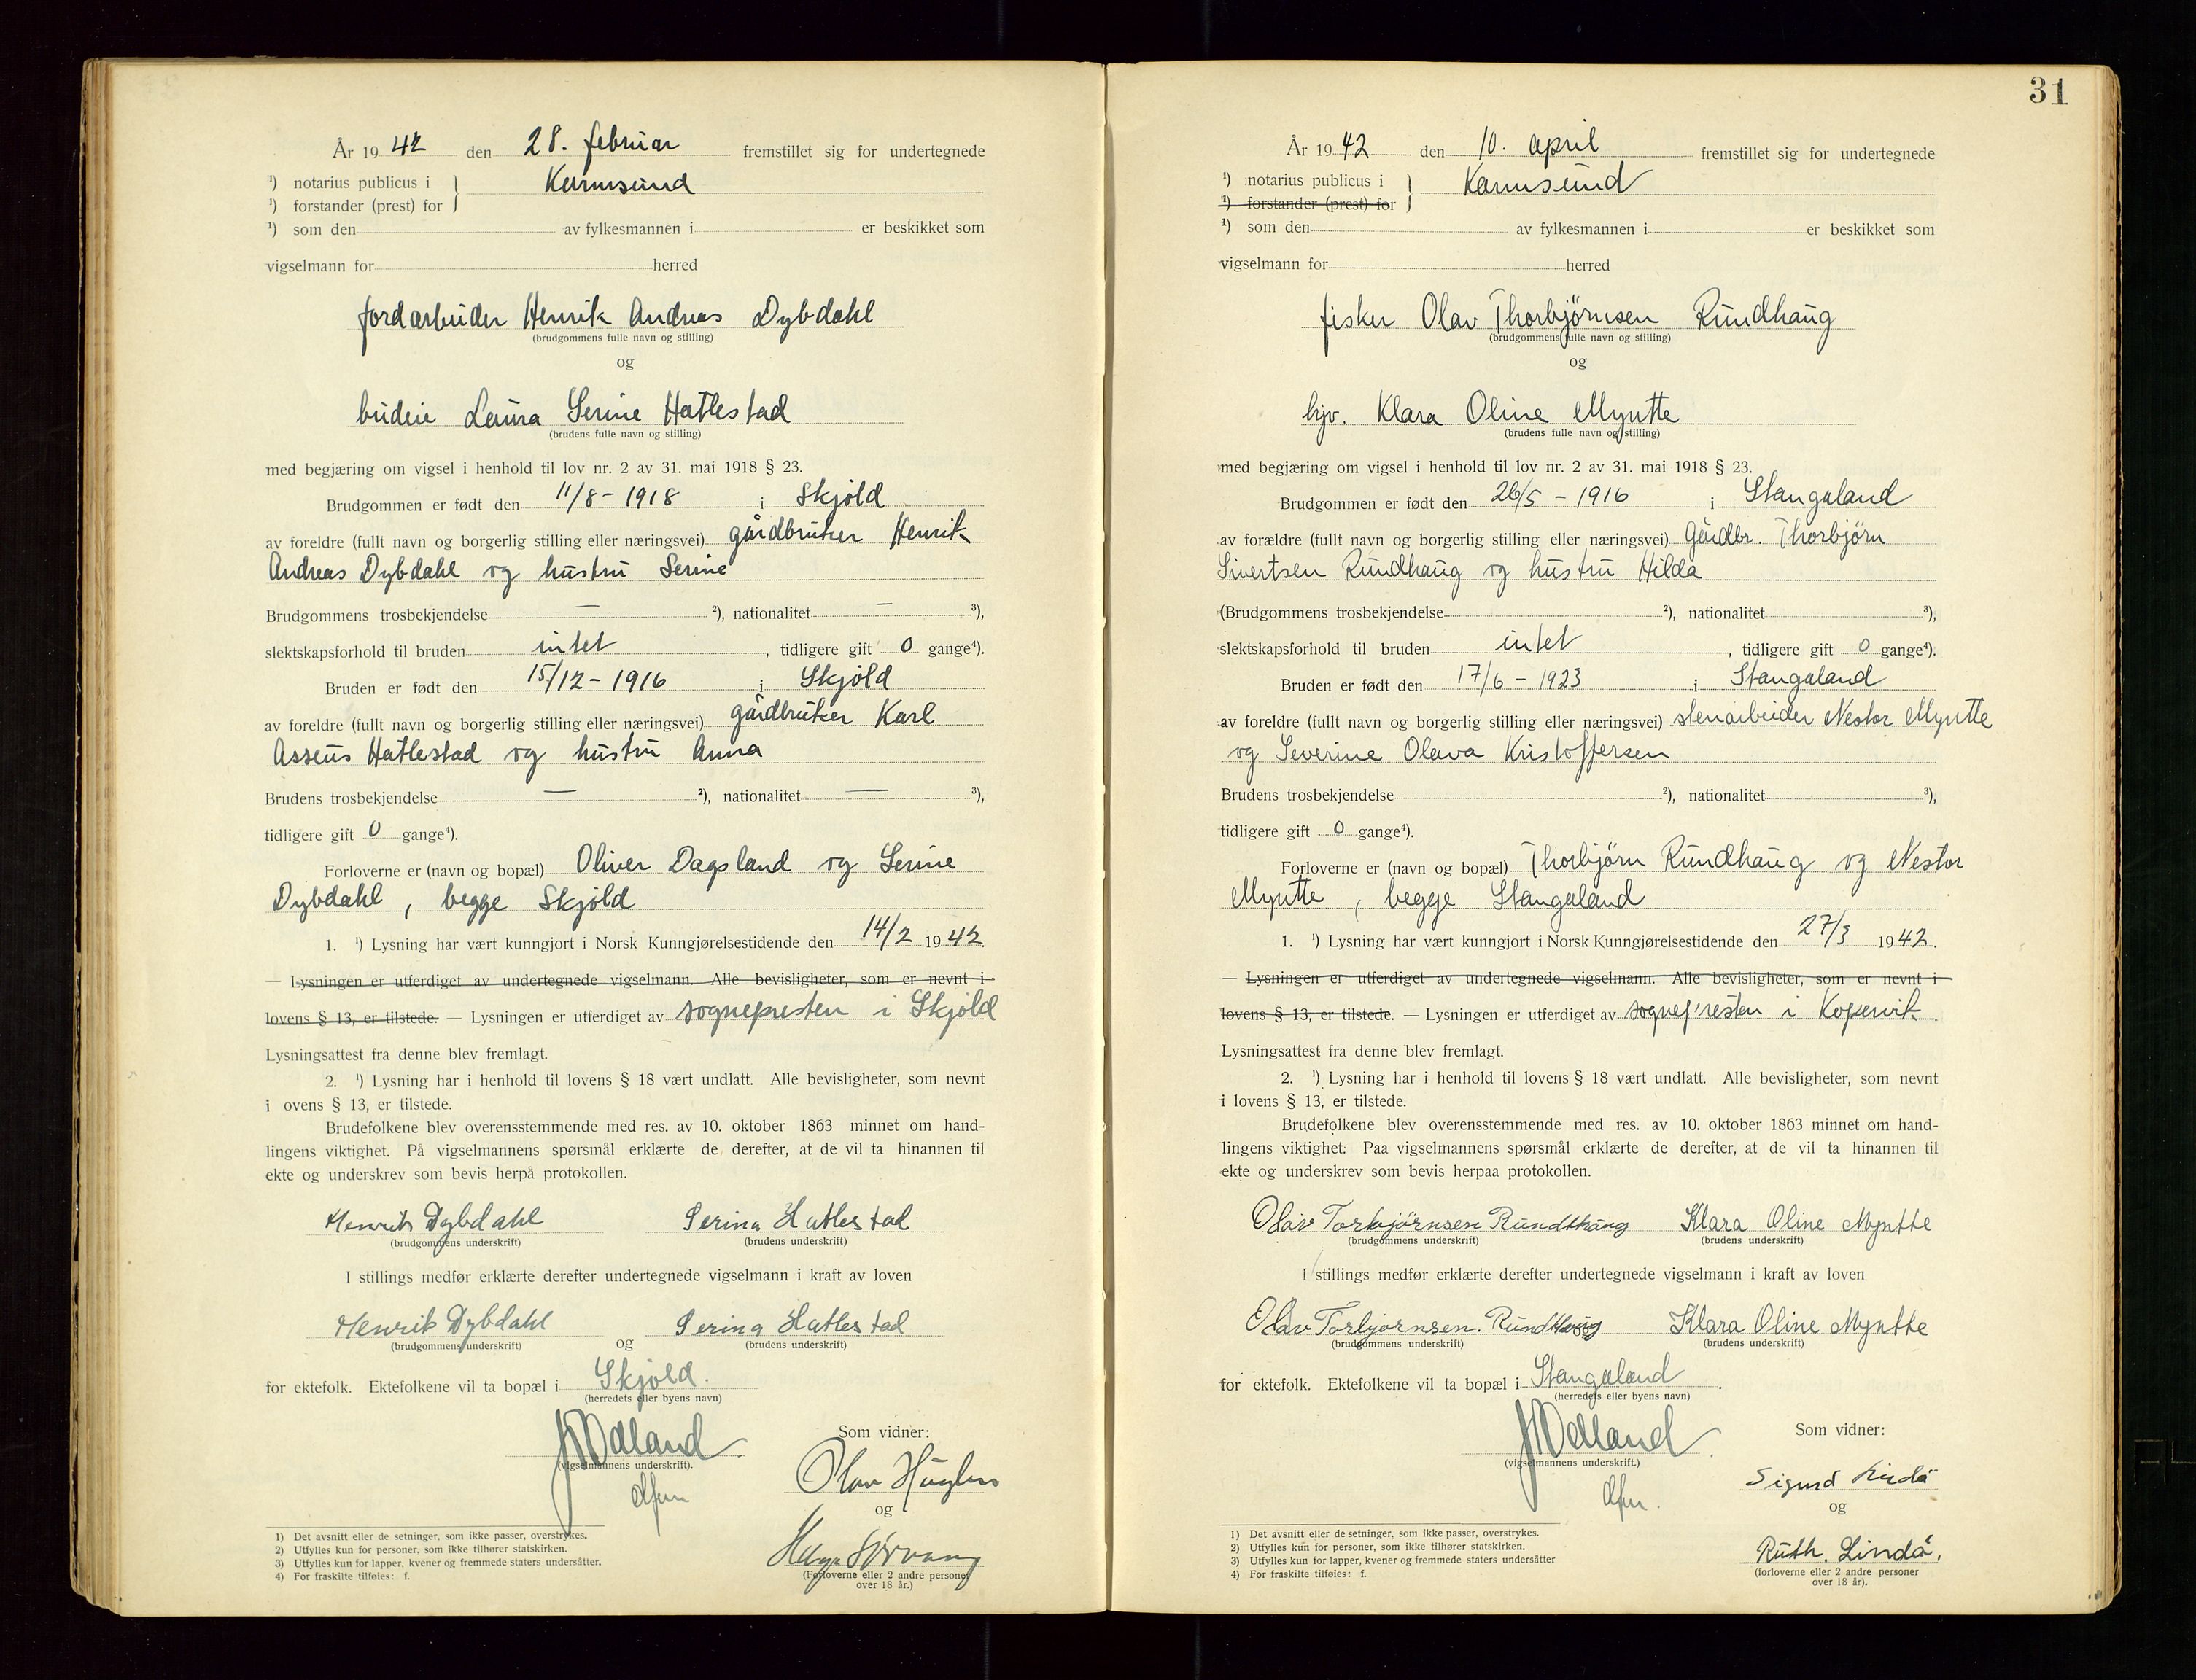 År 1942 den 28. februar fremstillet sig for undertegnede
¹) notarius publicus i } Karmsund
¹) forstander (prest) for
¹) som den av fylkesmannen i er beskikket som
vigselmann for herred
jordarbeider Henrik Andreas Dybdahl
(brudgommens fulle navn og stilling)
og
budeie Laura Serine Hatlestad
(brudens fulle navn og stilling)
med begjæring om vigsel i henhold til lov nr. 2 av 31. mai 1918 § 23.
Brudgommen er født den 11/8 - 1918 i Skjold
av foreldre (fullt navn og borgerlig stilling eller næringsvei) gårdbruker Henrik
Andreas Dybdahl og hustru Serine
Brudgommens trosbekjendelse — ²), nationalitet — ³),
slektskapsforhold til bruden intet , tidligere gift 0 gange⁴).
Bruden er født den 15/12 - 1916 i Skjold
av foreldre (fullt navn og borgerlig stilling eller næringsvei) gårdbruker Karl
Asseus Hatlestad og hustru Anna
Brudens trosbekjendelse — ²), nationalitet — ³),
tidligere gift 0 gange⁴).
Forloverne er (navn og bopæl) Oliver Dagsland og Serine
Dybdahl, begge Skjold
1. ¹) Lysning har vært kunngjort i Norsk Kunngjørelsestidende den 14/2 1942.
— Lysningen er utferdiget av undertegnede vigselmann. Alle bevisligheter, som er nevnt i
lovens § 13, er tilstede. — Lysningen er utferdiget av sognepresten i Skjold
Lysningsattest fra denne blev fremlagt.
2. ¹) Lysning har i henhold til lovens § 18 vært undlatt. Alle bevisligheter, som nevnt
i ovens § 13, er tilstede.
Brudefolkene blev overensstemmende med res. av 10. oktober 1863 minnet om hand-
lingens viktighet. På vigselmannens spørsmål erklærte de derefter, at de vil ta hinannen til
ekte og underskrev som bevis herpå protokollen.
Henrik Dybdahl Serina Hatlestad
(brudgommens underskrift) (brudens underskrift)
I stillings medfør erklærte derefter undertegnede vigselmann i kraft av loven
Henrik Dybdahl og Serina Hatlestad
(brudgommens underskrift) (brudens underskrift)
for ektefolk. Ektefolkene vil ta bopæl i Skjold.
(herredets eller byens navn)
Ødland
(vigselmannens underskrift).
Som vidner:
Olav
og
(Forloverne eller 2 andre personer
over 18 år.)
1) Det avsnitt eller de setninger, som ikke passer, overstrykes.
2) Utfylles kun for personer, som ikke tilhører statskirken.
3) Utfylles kun for lapper, kvener og fremmede staters undersåtter.
4) For fraskilte tilføies: f.
31
År 1942 den 10. april fremstillet sig for undertegnede
¹) notarius publicus i } Karmsund
¹) forstander (prest) for
¹) som den av fylkesmannen i er beskikket som
vigselmann for herred
fisker Olav Thorbjörnsen Rundhaug
(brudgommens fulle navn og stilling)
og
hjv. Klara Oline Myntte
(brudens fulle navn og stilling)
med begjæring om vigsel i henhold til lov nr. 2 av 31. mai 1918 § 23.
Brudgommen er født den 26/5 - 1916 i Stangaland
av forældre (fullt navn og borgerlig stilling eller næringsvei) Gårdbr. Thorbjörn
Sivertsen Rundhaug og hustru Hilda
(Brudgommens trosbekjendelse ²), nationalitet ³),
slektskapsforhold til bruden intet , tidligere gift 0 gange⁴).
Bruden er født den 17/6 - 1923 i Stangaland
av foreldre (fullt navn og borgerlig stilling eller næringsvei) stenarbeider Nestor Myntte
og Severine Olava Kristoffersen
Brudens trosbekjendelse ²), nationalitet ³),
tidligere gift 0 gange⁴).
Forloverne er (navn og bopæl) Thorbjörn Rundhaug og Nestor
Myntte, begge Stangaland
1. ¹) Lysning har vært kunngjort i Norsk Kunngjørelsestidende den 27/3 1942.
— Lysningen er utferdiget av undertegnede vigselmann. Alle bevisligheter, som er nevnt i
lovens § 13, er tilstede. — Lysningen er utferdiget av sognepresten i Kopervik.
Lysningsattest fra denne blev fremlagt.
2. ¹) Lysning har i henhold til lovens § 18 vært undlatt. Alle bevisligheter, som nevnt
i lovens § 13, er tilstede.
Brudefolkene blev overensstemmende med res. av 10. oktober 1863 minnet om hand-
lingens viktighet. Paa vigselmannens spørsmål erklærte de derefter, at de vil ta hinannen til
ekte og underskrev som bevis herpaa protokollen.
Olav Torbjørnsen Rundthaug Klara Oline Myntte
(brudgommens underskrift) (brudens underskrift)
I stillings medfør erklærte derefter undertegnede vigselmann i kraft av loven
Olav Torbjørnsen. Rundthaug Klara Oline Myntte
(brudgommens underskrift) (brudens underskrift)
for ektefolk. Ektefolkene vil ta bopæl i Stangaland.
(herredets eller byens navn)
Ødland
(vigselmannens underskrift.)
Som vidner:
Sigurd Lindå
og
Ruth. Lindå.
(forloverne eller 2 andre personer
over 18 år).
1) Det avsnitt eller de setninger, som ikke passer, overstrykes.
2) Utfylles kun for personer, som ikke tilhører statskirken.
3) Utfylles kun for lapper, kvener og fremmede staters undersåtter
4) For fraskilte tilføies: f.